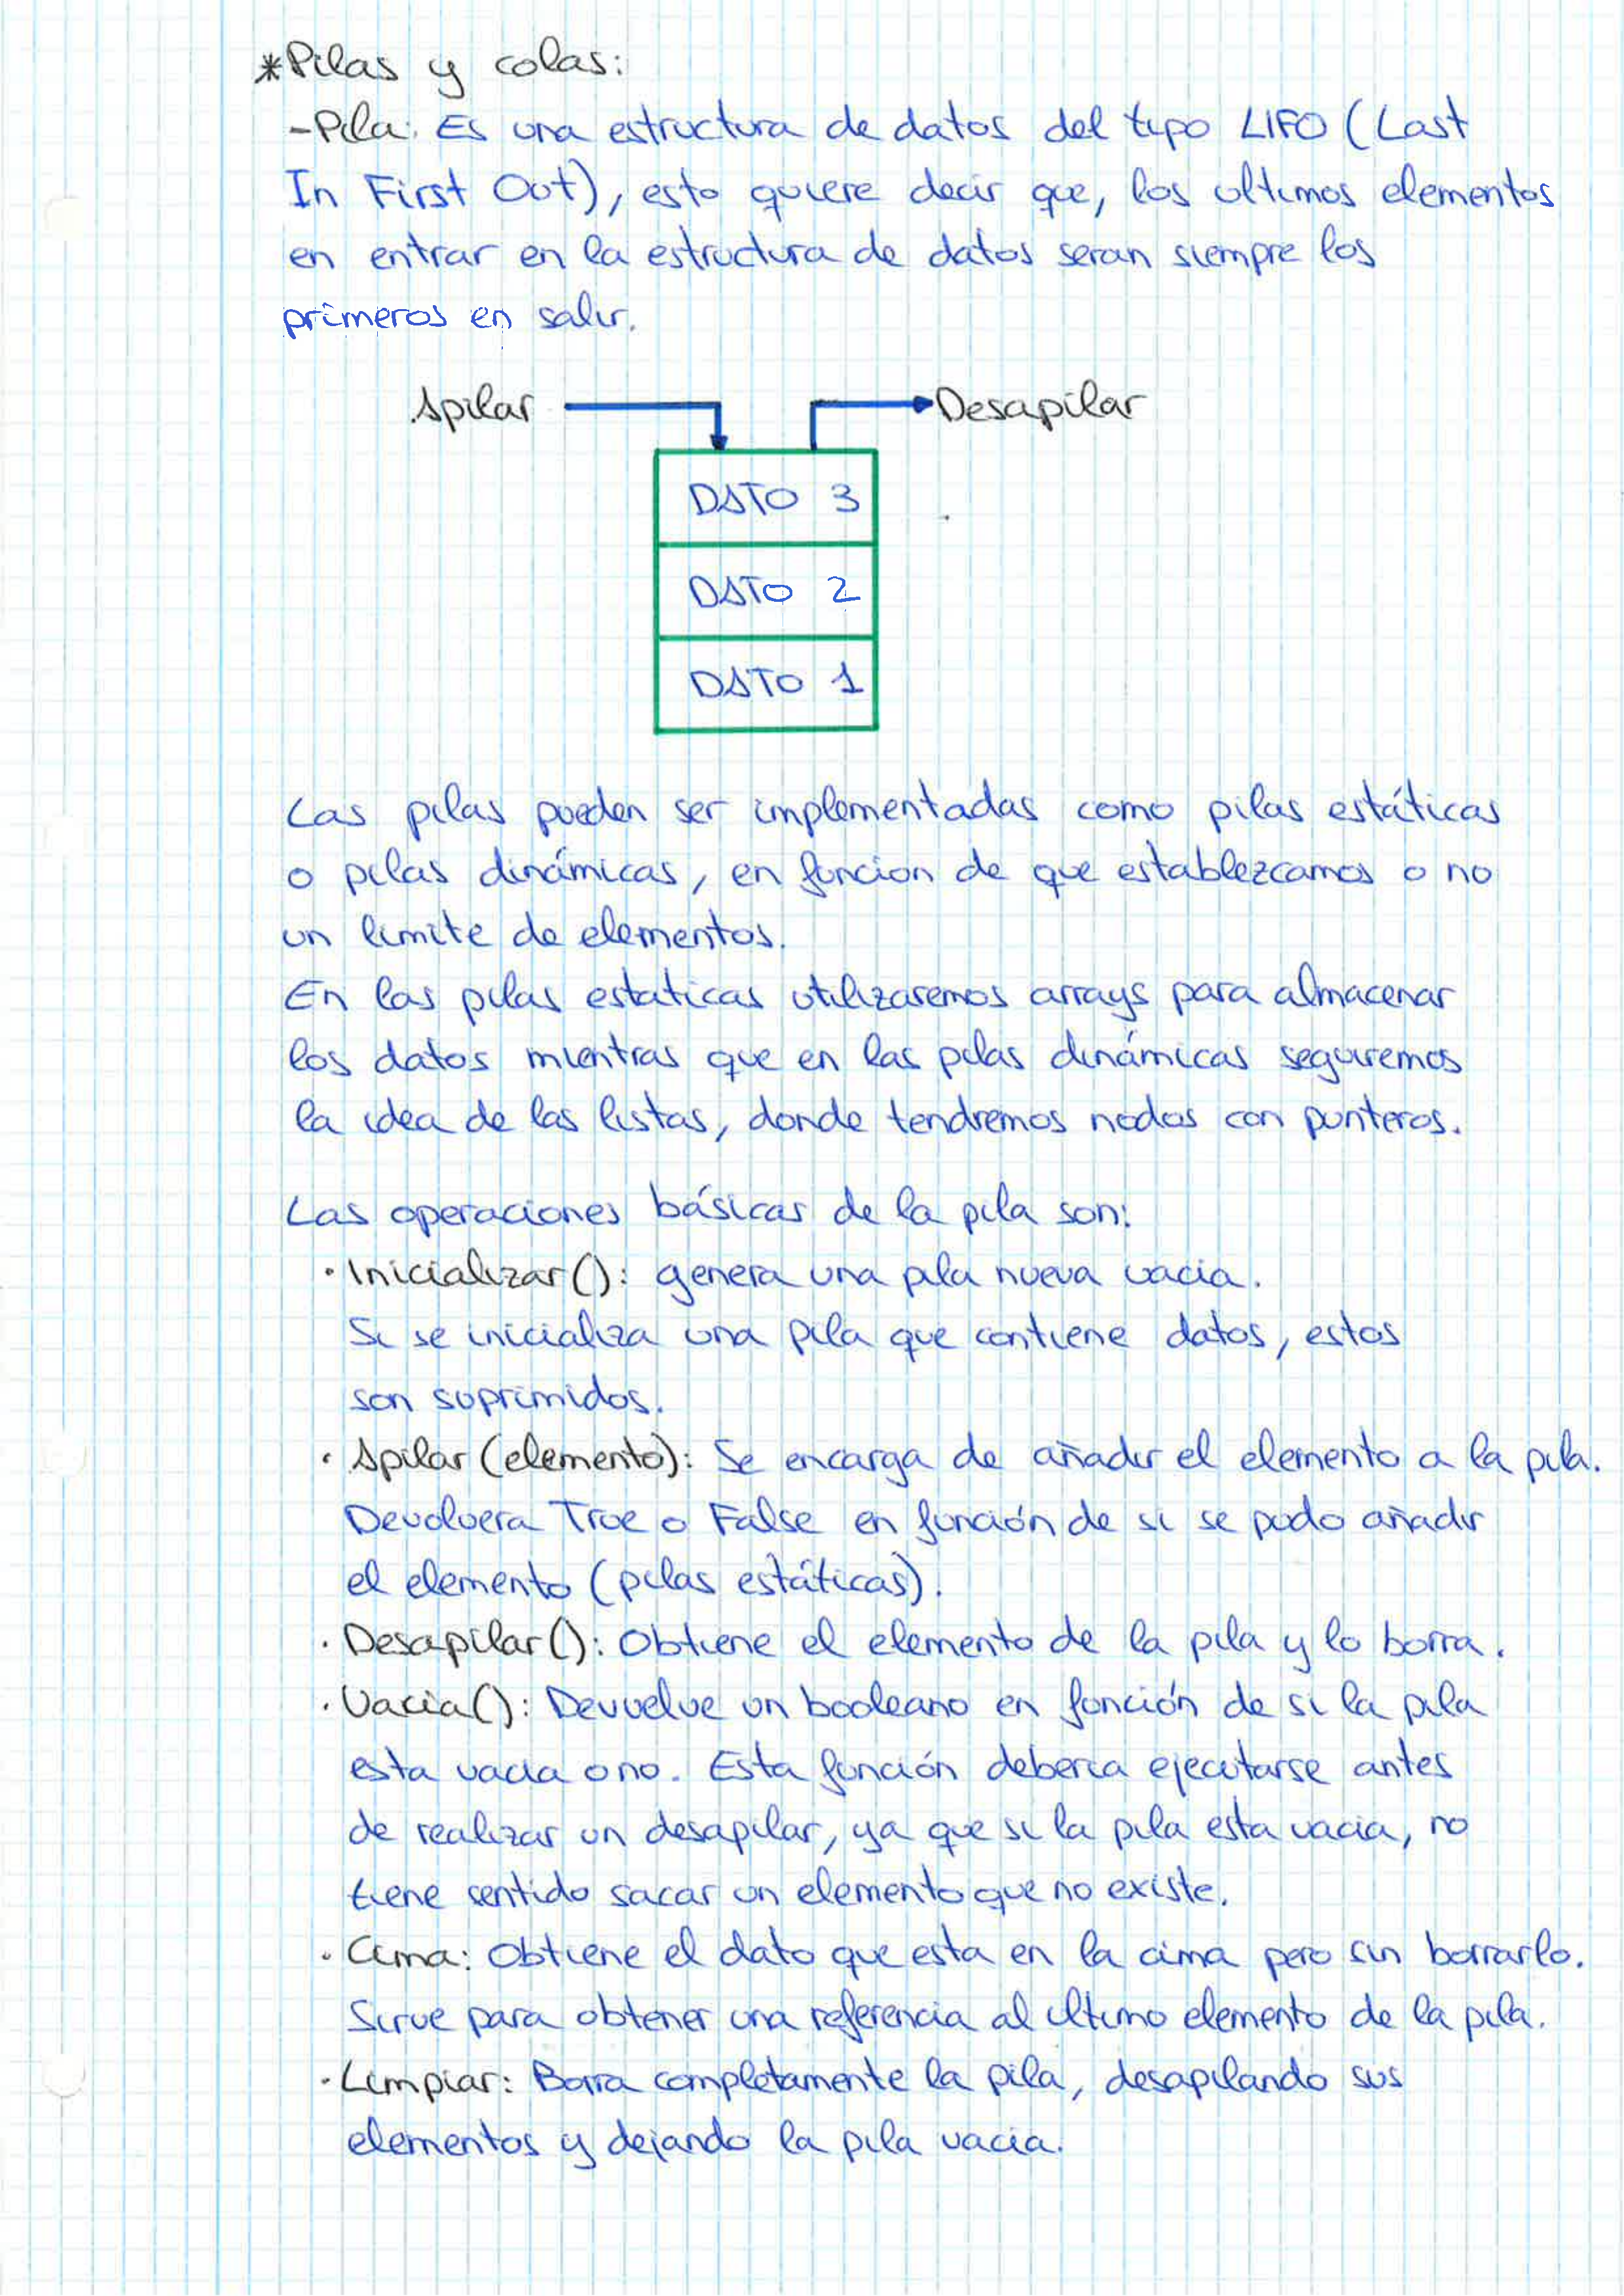 *Pilas y colas:
-Pila: Es una estructura de datos del tipo LIFO (Last
In First Out), esto quiere decir que, los ultimos elementos
en entrar en la estructura de datos seran siempre los
primeros en salir.
Apilar Desapilar
DATO 3
DATO 2
DATO 1
Las pilas pueden ser implementadas como pilas estáticas
o pilas dinámicas, en funcion de que establezcamos o no
un limite de elementos.
En las pilas estaticas utilizaremos arrays para almacenar
los datos mientras que en las pilas dinámicas seguiremos
la idea de las listas, donde tendremos nodos con punteros.
Las operaciones básicas de la pila son:
· Inicializar(): genera una pila nueva vacia.
Si se inicializa una pila que contiene datos, estos
son suprimidos.
· Apilar (elemento): Se encarga de añadir el elemento a la pila.
Devolvera True o False en función de si se pudo añadir
el elemento (pilas estáticas).
· Desapilar(): Obtiene el elemento de la pila y lo borra.
· Vacia(): Devuelve un booleano en función de si la pila
esta vacia o no. Esta función deberia ejecutarse antes
de realizar un desapilar, ya que si la pila esta vacia, no
tiene sentido sacar un elemento que no existe.
· Cima: Obtiene el dato que esta en la cima pero sin borrarlo.
Sirve para obtener una referencia al ultimo elemento de la pila.
· Limpiar: Borra completamente la pila, desapilando sus
elementos y dejando la pila vacia.